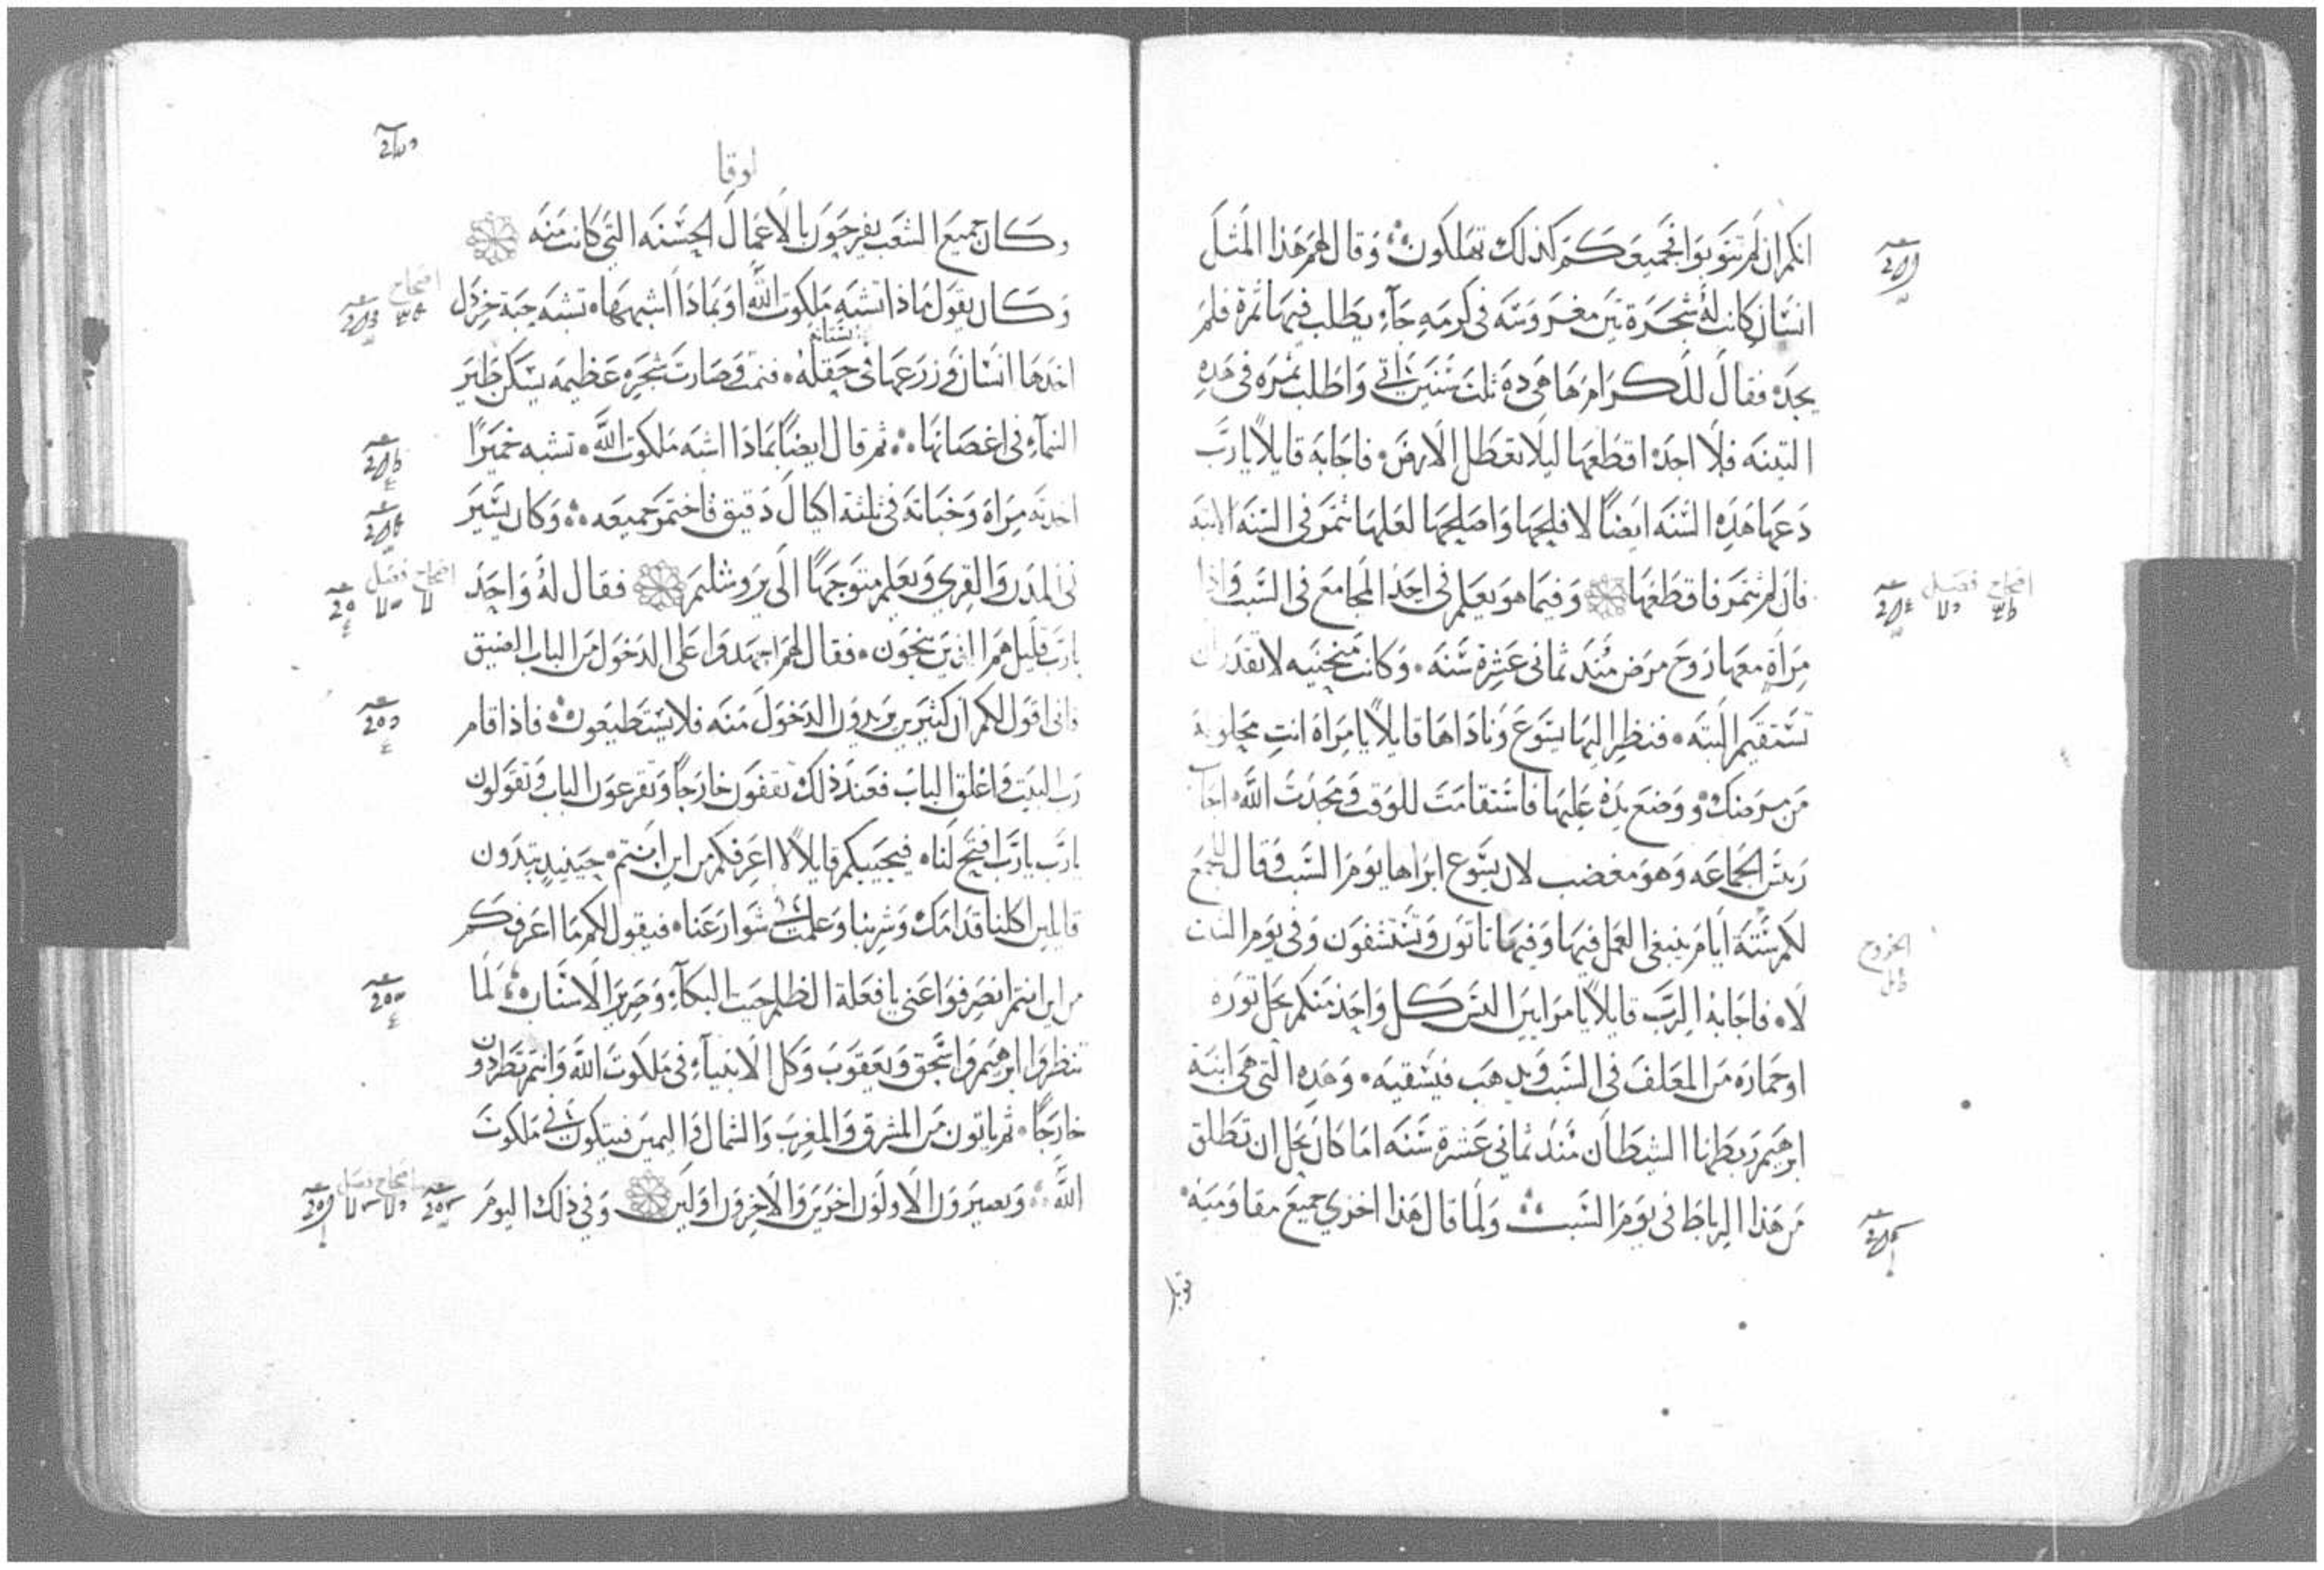 انكم ان لم تتوبوا فجميعكم كذلك تهلكون وقال لهم هذا المثل
انسان كانت له شجرة تين مغروسه في كرمه جآء يطلب فيها ثمرة فلم
يجده فقال للكرام ها هى ده ثلث سنين اتي واطلب ثمره في هده
التينه فلا اجده اقطعها ليلا تعطل الارض فاجابه قايلا يا رب
دعها هده السنه ايضا لافلحها واصلحها لعلها تثمر في السنه الاتيه
فان لم تثمر فاقطعها وفيما هو يعلم في احد المجامع في السبت واذا
مراة معها روح مرض مند ثمانى عشرة سنه وكانت منحنيه لا تقدر ان
تستقيم البته فنظر اليها يسوع وناداها قايلا يا مراة انت محلوله
من مرضك ووضع يده عليها فاستقامت للوقت ومجدت الله اجاب
ريس الجماعه وهو مغضب لان يسوع ابراها يوم السبت وقال للجمع
لكم ستة ايام ينبغي العمل فيها وفيها تاتون وتستشفون وفي يوم السبت
لا فاجابه الرب قايلا يا مرايين اليس كل واحد منكم يحل توره
او حماره من المعلف في السبت ويدهب فيسقيه وهده التي هى ابنة
ابرهيم ربطها الشيطان مند ثمانى عشرة سنه اما كان يحل ان تطلق
من هذا الرباط في يوم السبت ولما قال هذا اخزي جميع مقاوميه
اصحاح فصل
الخروج
لوقا
وكان جميع الشعب يفرحون بالاعمال الحسنه التي كانت منه
وكان يقول ماذا تشبه ملكوت الله او بماذا اشبهها تشبه حبة خردل
بستانه
اخدها انسان وزرعها في حقله فنمت وصارت شجره عظيمه يسكن طير
السمآء في اغصانها ثم قال ايضا بمادا اشبه ملكوت الله تشبه خميرا
اخدته مراة وخباته في ثلثة اكيال دقيق فاختمر جميعه وكان يسير
في المدن والقري ويعلم متوجها الي يروشليم فقال له واحد
يارب قليل هم الذين ينجون فقال لهم اجهدوا على الدخول من الباب الضيق
فاني اقول لكم ان كثيرين يريدون الدخول منه فلا يستطيعون فاذا قام
رب البيت واغلق الباب فعند ذلك تقفون خارجا وتقرعون الباب وتقولون
يارب يارب افتح لنا فيجيبكم قايلا لا اعرفكم من اين انتم حينيد تبتدون
قايلين اكلنا قدامك وشربنا وعلمت شوارعنا فيقول لكم ما اعرفكم
من اين انتم انصرفوا عني يا فعلة الظلم حيت البكآء وصرير الاسنان لما
تنظروا ابرهيم واسحق ويعقوب وكل الانبيآء في ملكوت الله وانتم تطردون
خارجا ثم ياتون من المشرق والمغرب والشمال واليمين فيتكون في ملكوت
الله ويصيرون الاولون اخرين والاخرون اولين وفي ذلك اليوم
اصحاح
اصحاح فصل
اصحاح فصل